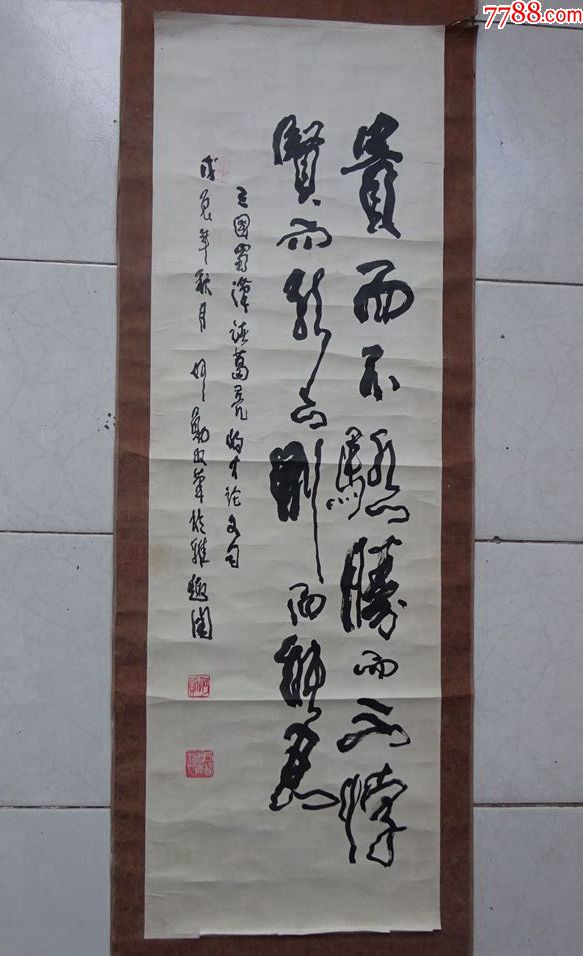 7788.com
貴而不驕勝而不恃
賢而能下剛而能忍
三國蜀漢诸葛亮将才论文句
戊寅年秋月 於雅趣閣